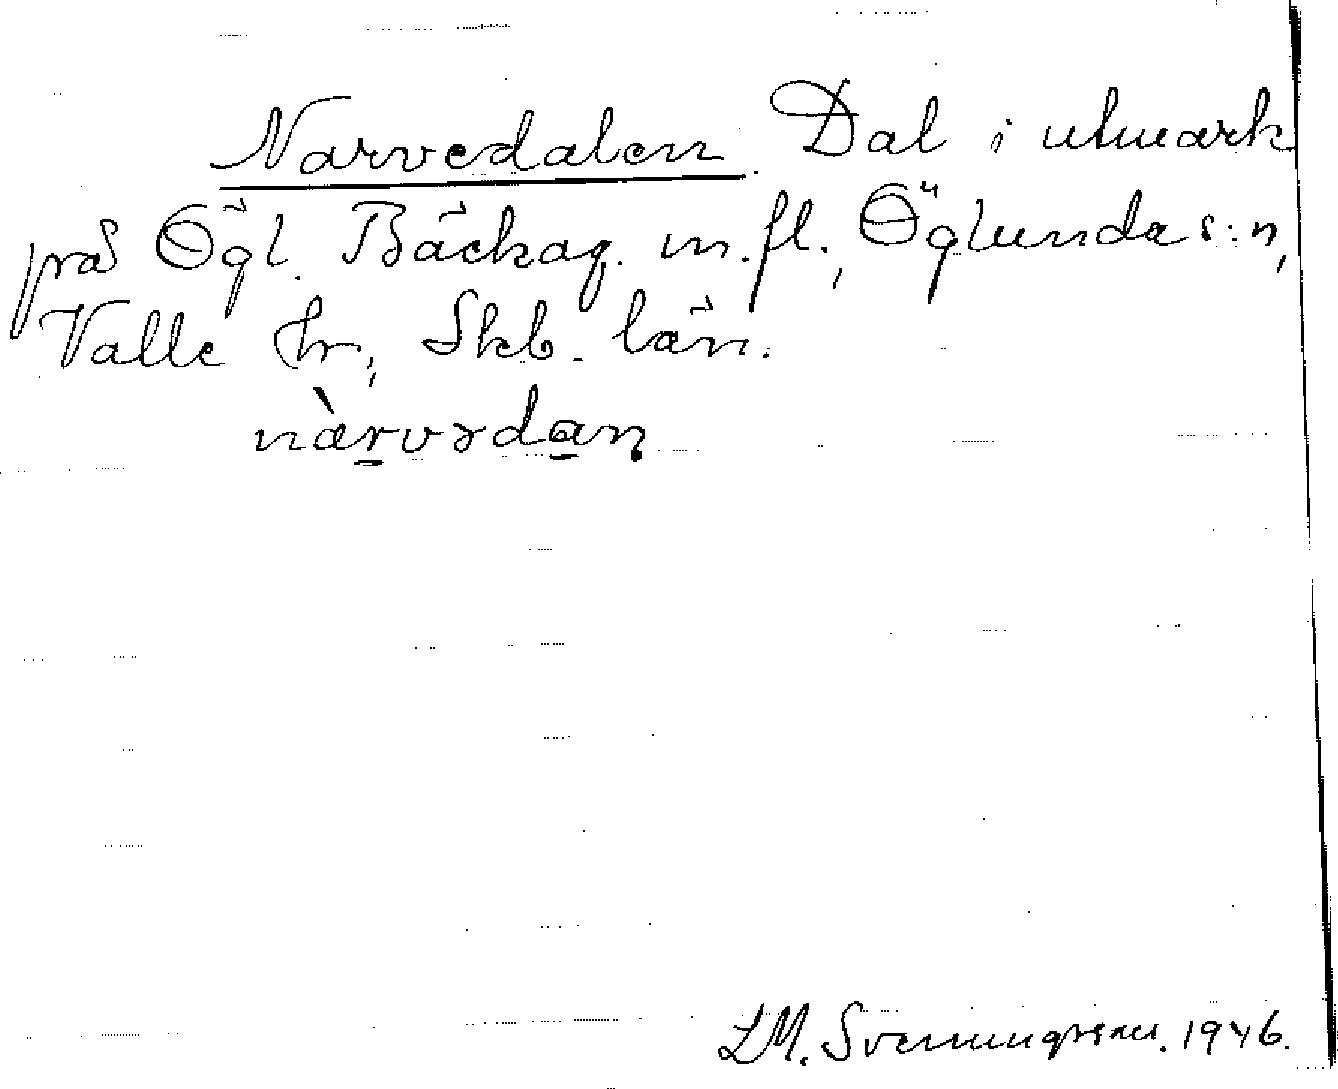 Narvedalen. Dal i utmark
på Ögl. Bäckag. m.fl., Öglunda s:n,
Valle hr, Skb. län.
nàrvədan
LM. Svenungsson. 1946.